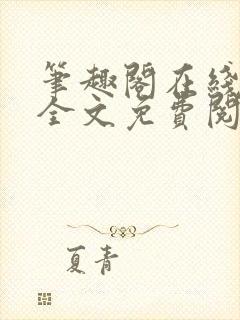 筆趣閣在綫
全文免費閱
夏青